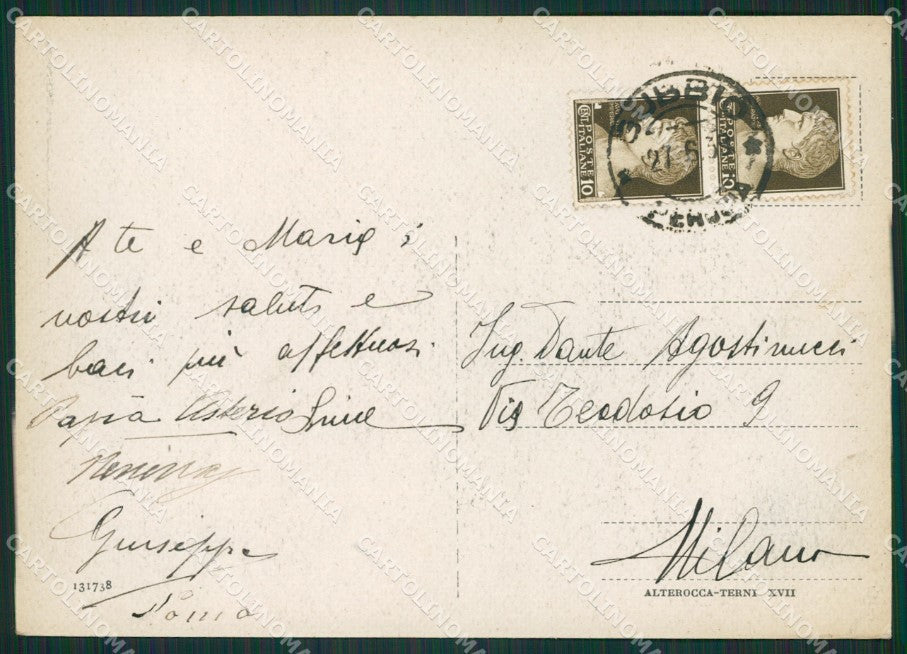 A te e Maria i
nostri saluti e
baci più affettuosi.
Papà Valeria
Giuseppe
131738
GUBBIO
27
PERUGIA
POSTE ITALIANE
CENT 10
POSTE ITALIANE
10
Ing. Dante Agostinucci
Via Teodosio 9
Milano
ALTEROCCA-TERNI XVII
CARTOLINOMANIA